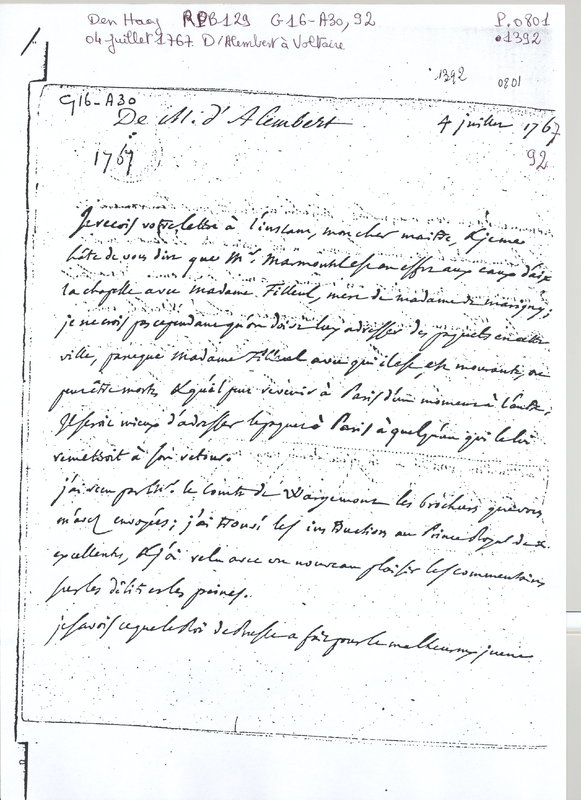 Den Haag RPB129 G16-A30, 92 P.0801
04 juillet 1767 D'Alembert à Voltaire 01392
1392 0801
G16-A30
De M. d'Alembert 4 juillet 1767
1767 92
Je recois votre lettre à l'instant, mon cher maitre, & je me
hâte de vous dire que Mr. Marmontel est en effet aux eaux d'aix
la chapelle avec madame Filleul, mere de madame de marigny;
je ne crois pas cependant qu'on doive luy adresser des paquets en cette
ville, parceque madame Filleul avec qui il est, est mourante, ou
peut être morte, & qu'il peut revenir à Paris d'un moment à l'autre,
il seroit mieux d'adresser le paquet à Paris à quelqu'un qui le lui
remettroit à son retour.
j'ai recu par Mr. le Comte de Wargemont les brochures que vous
m'avez envoyées; j'ai trouvé les instructions au Prince Royal de x.
excellentes, & j'ai relu avec un nouveau plaisir les commentaires
sur les délits et les peines.
je savois ce que le Roi de Prusse a fait pour le malheureux jeune